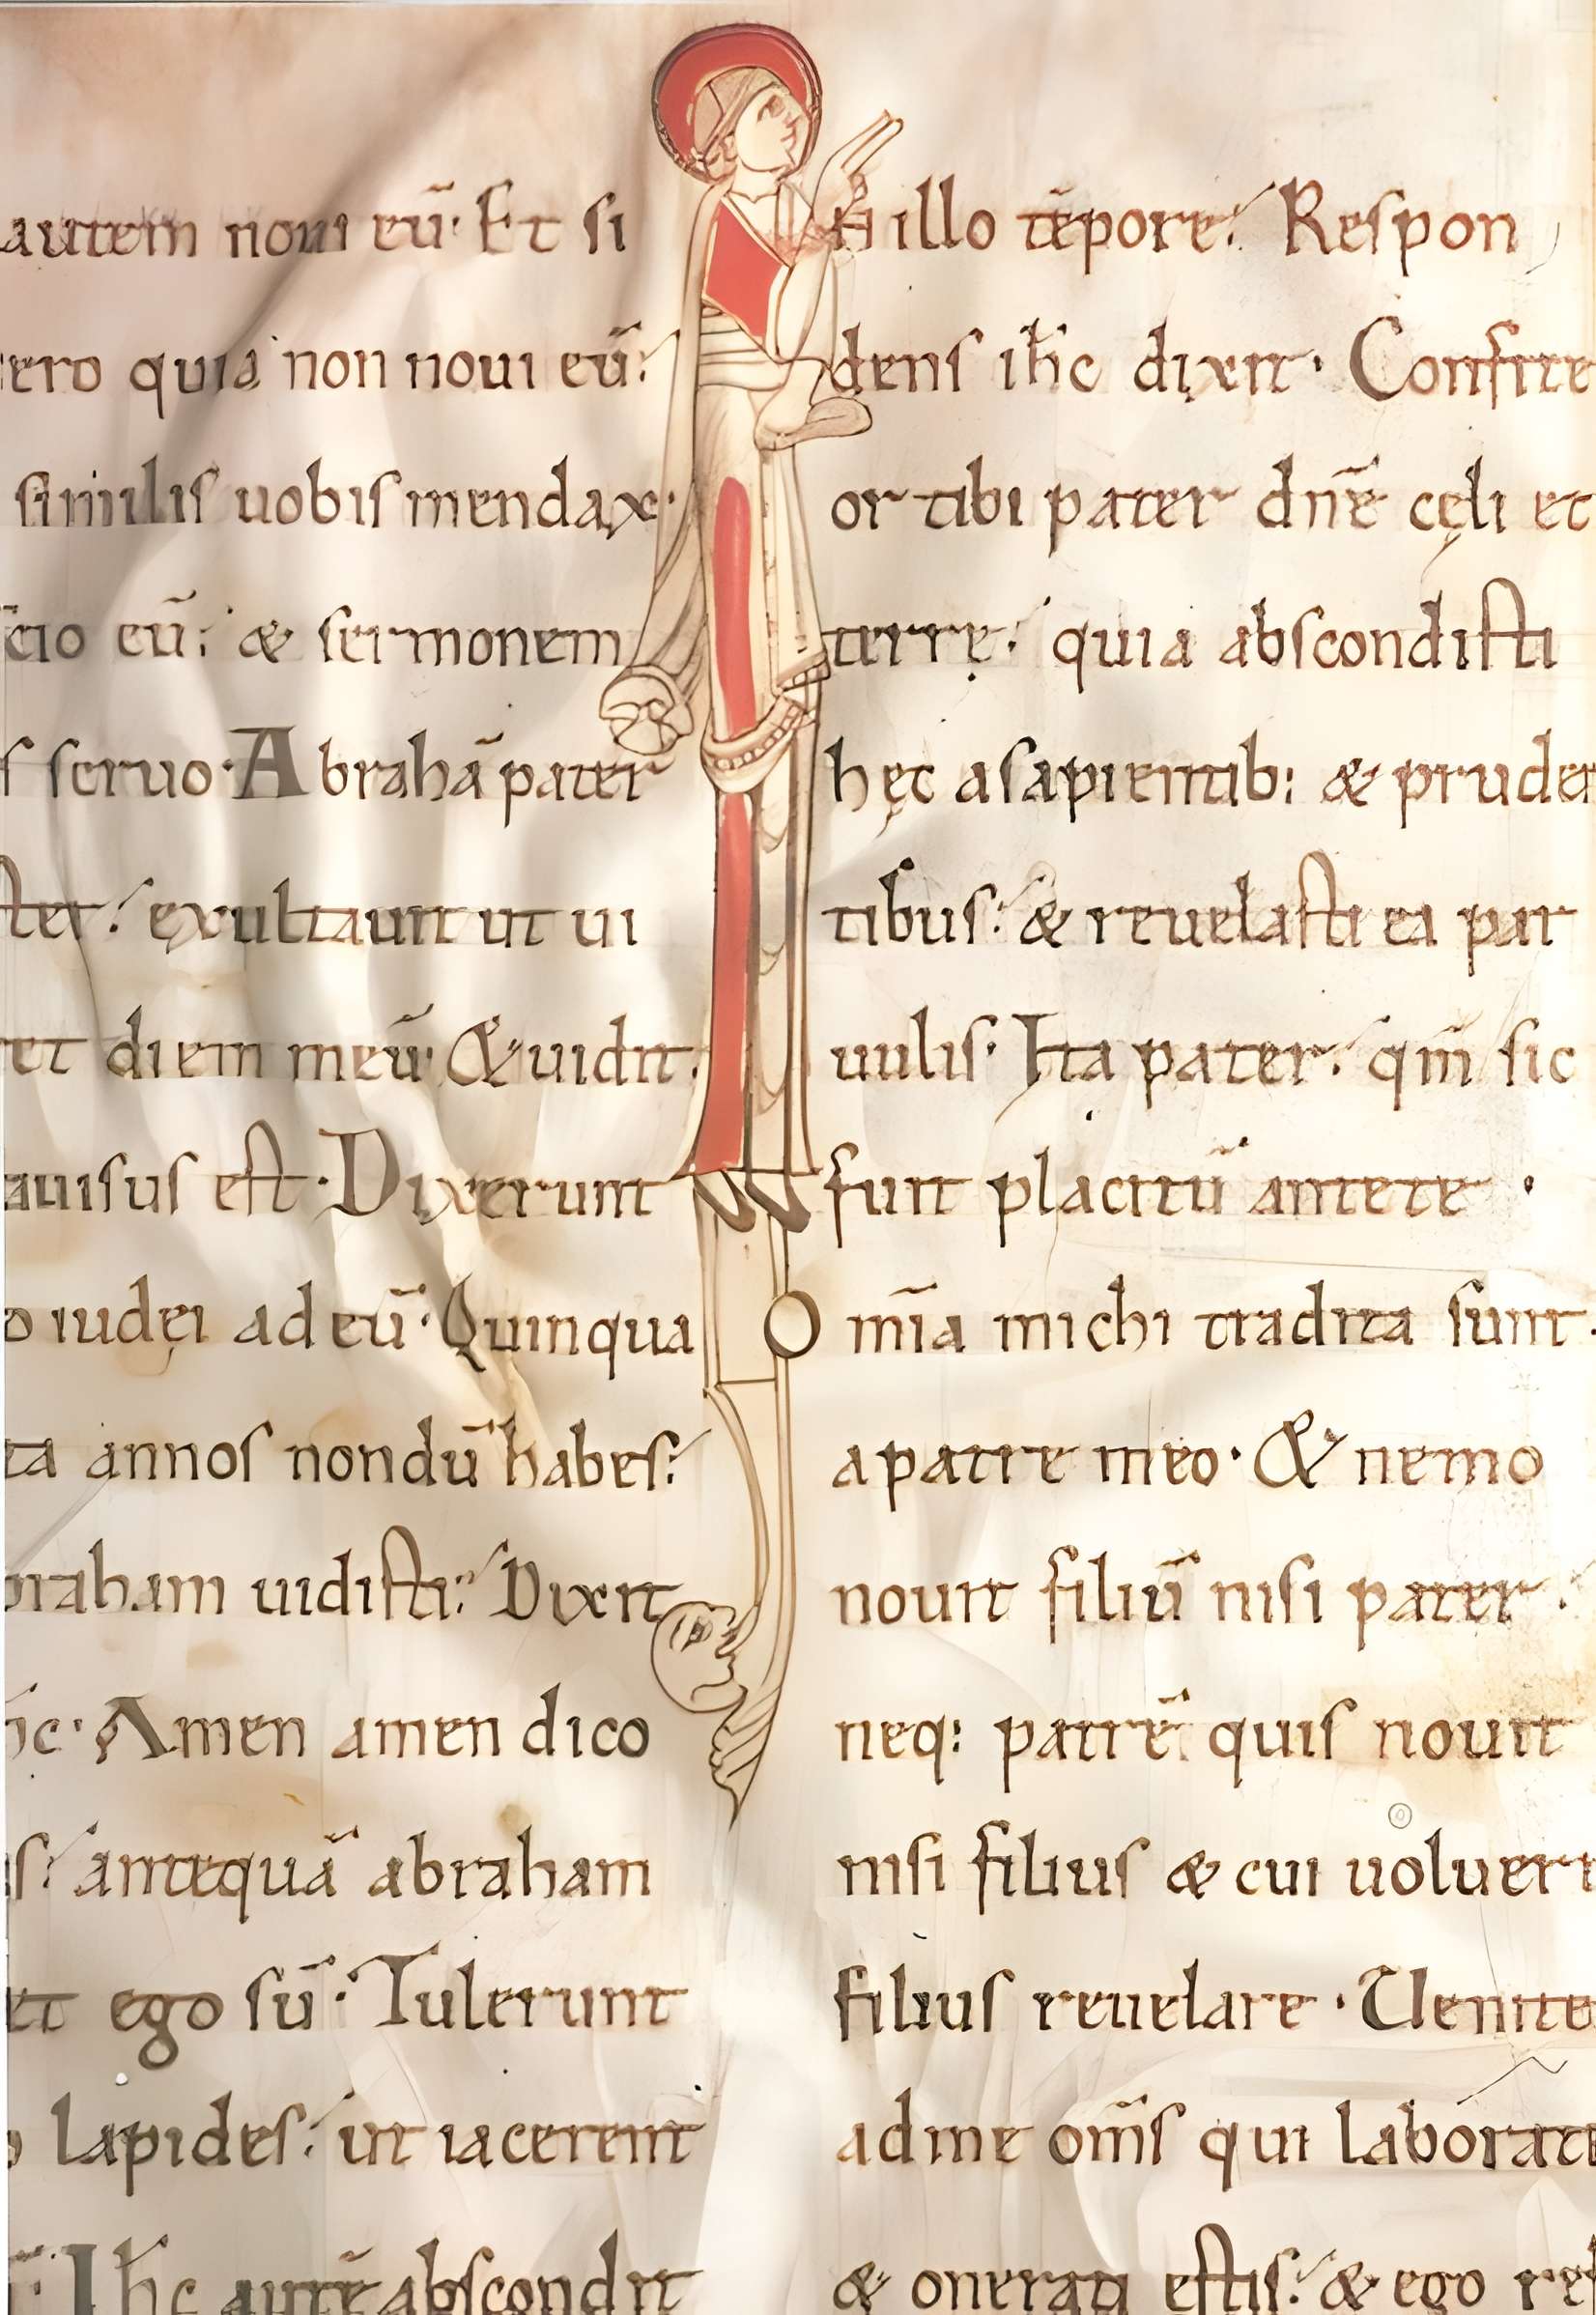 autem noui eū· Et si
ero quia non noui eū:
similis uobis mendax·
cio eū: & sermonem
s seruo· Abrahā pater
ster: exultauit ut ui
et diem meū· & uidit:
auisus est· Dixerunt
o iudęi ad eū· Quinqua
ta annos nondū habes:
braham uidisti: Dixit
ihc· Amen amen dico
s: antequā abraham
et ego sū· Tulerunt
lapides: ut iacerent
Ihc autē abscondit
N illo tēpore: Respon
dens ihc dixit· Confite
or tibi pater dnē cęli et
terrę: quia abscondisti
hęc a sapientib: & pruden
tibus: & reuelasti ea par
uulis· Ita pater: qm̄ sic
fuit placitū ante te·
Om̄ia michi tradita sunt·
a patre meo· & nemo
nouit filiū nisi pater·
neq: patrē quis nouit
nisi filius & cui uoluerı
filius reuelare· Uenite
ad me om̄s qui laborati
& onerati estis: & ego ref